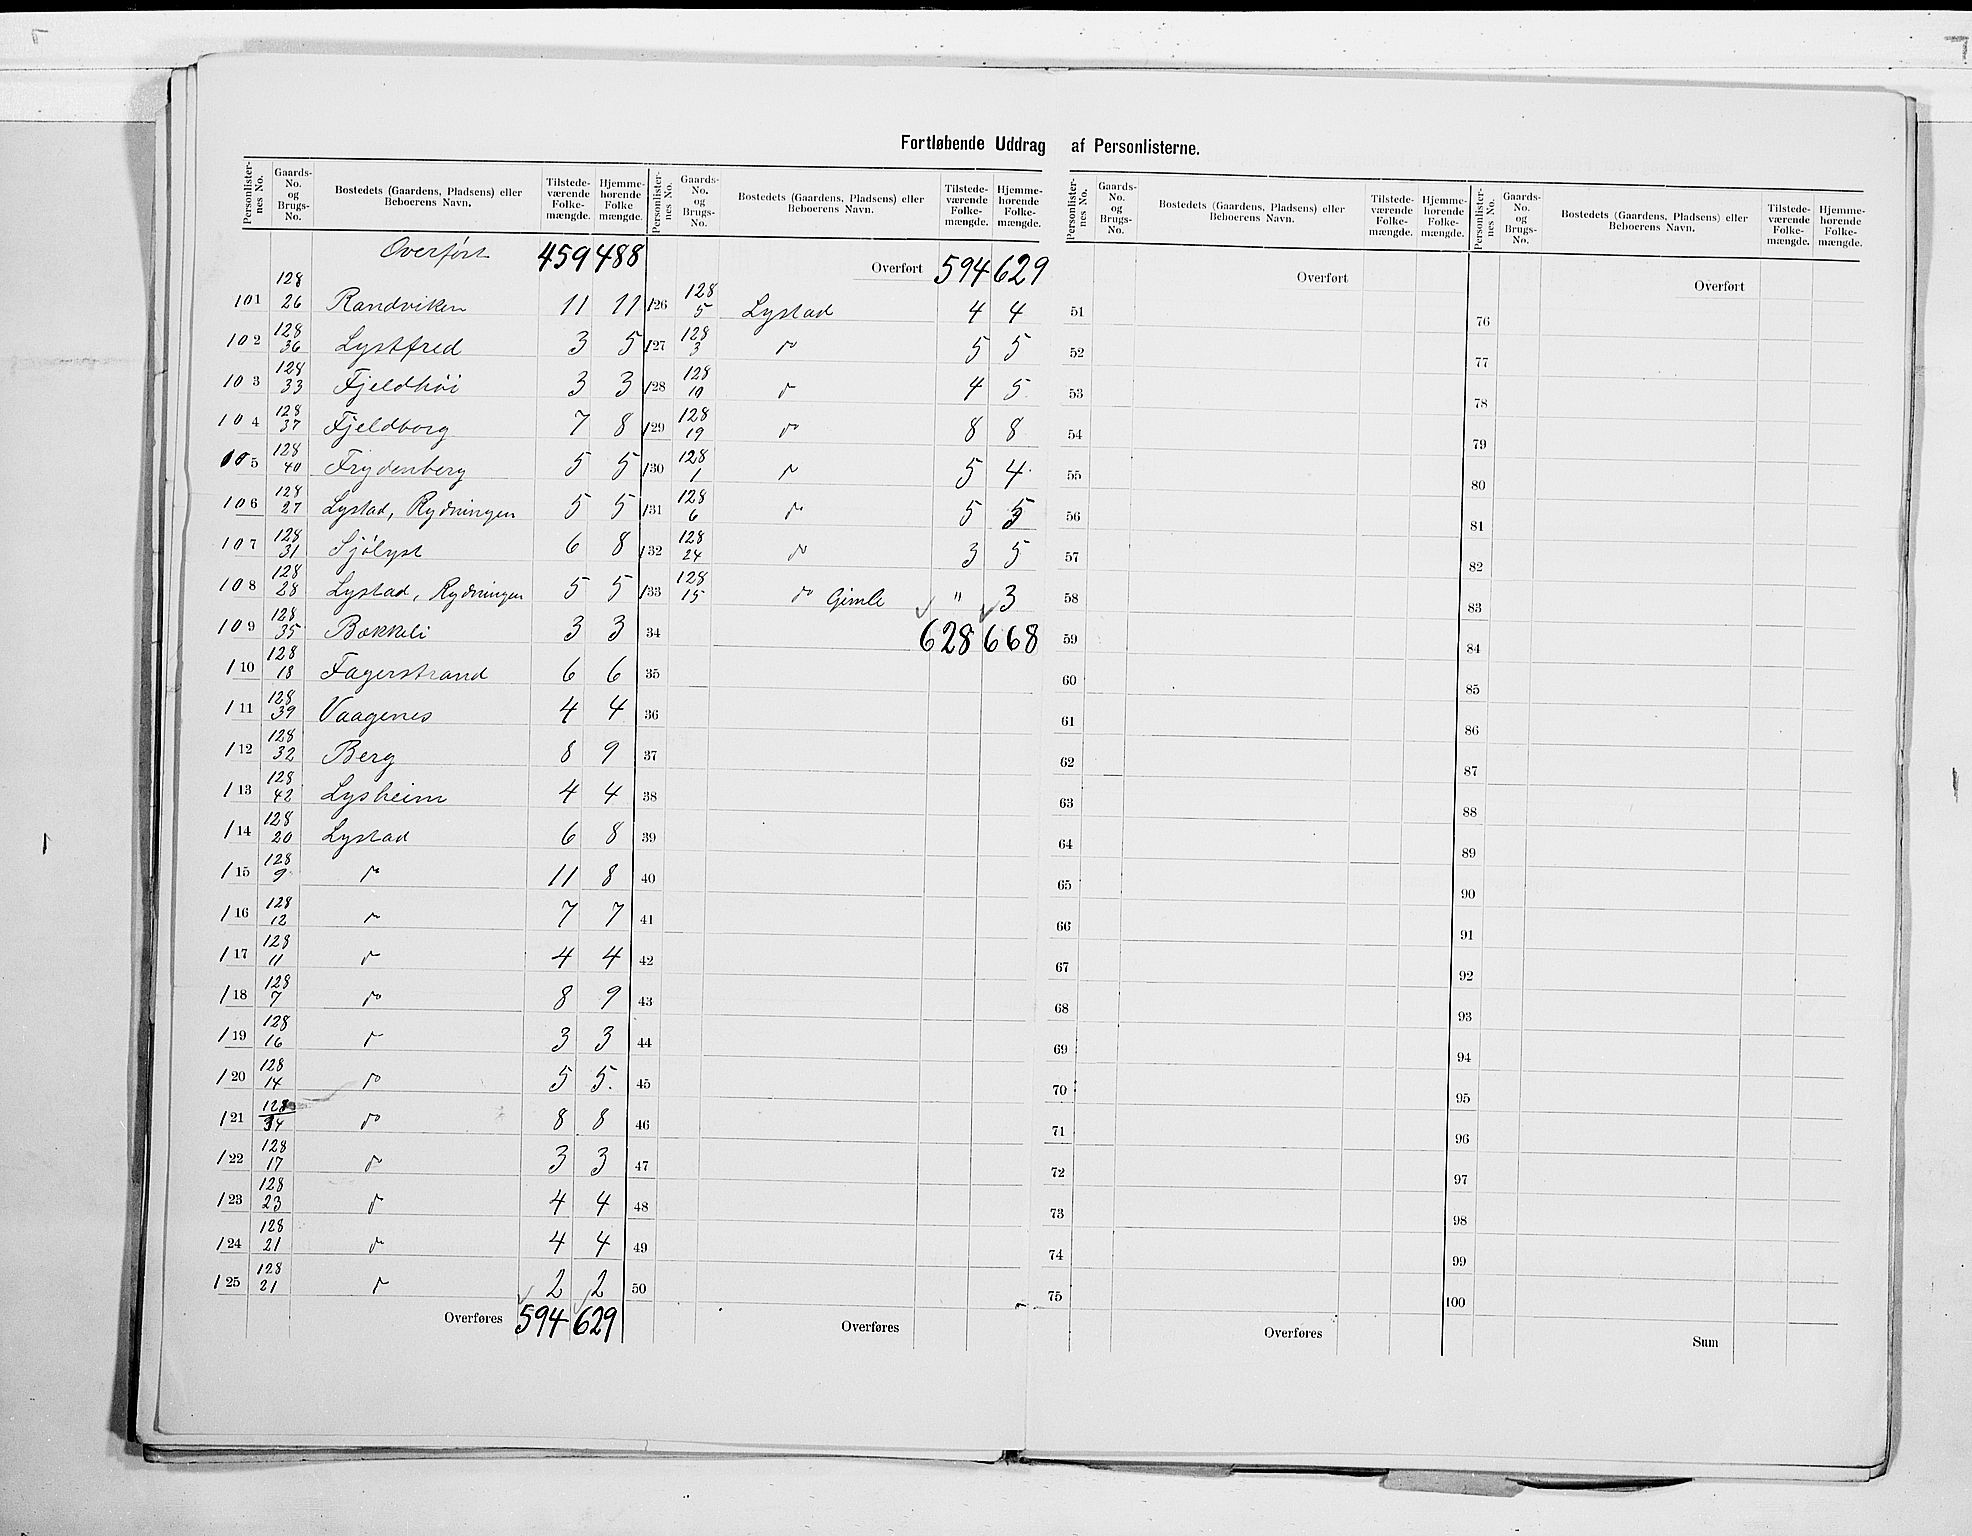 Fortløbende Uddrag af Personlisterne.
Personlister-nes No. Gaards-No. og Brugs-No. Bostedets (Gaardens, Pladsens) eller Beboerens Navn. Tilstede-værende Folke-mængde. Hjemme-hørende Folke mængde.
Overført 459 488
101 128/26 Randviken 11 11
102 128/36 Lystfred 3 5
103 128/33 Fjeldhöi 3 3
104 128/37 Fjeldborg 7 8
105 128/40 Frydenberg 5 5
106 128/27 Lystad, Rydningen 5 5
107 128/31 Sjölyst 6 8
108 128/28 Lystad, Rydningen 5 5
109 128/35 Bækkeli 3 3
110 128/18 Fagerstrand 6 6
111 128/39 Vaagenes 4 4
112 128/32 Berg 8 9
113 128/42 Lysheim 4 4
114 128/20 Lystad 6 8
115 128/9 do 11 8
116 128/12 do 7 7
117 128/11 do 4 4
118 128/7 do 8 9
119 128/16 do 3 3
120 128/14 do 5 5.
121 128/34 do 8 8
122 128/17 do 3 3
123 128/23 do 4 4
124 128/21 do 4 4
125 128/21 do 2 2
Overføres 594 629
Personlister-nes No. Gaards-No. og Brugs-No. Bostedets (Gaardens, Pladsens) eller Beboerens Navn. Tilstede-værende Folke-mængde. Hjemme-hørende Folke-mængde.
Overført 594 629
126 128/5 Lystad 4 4
127 128/3 do 5 5
128 128/10 do 4 5
129 128/19 do 8 8
130 128/1 do 5 4
131 128/6 do 5 5
132 128/24 do 3 5
133 128/15 do Gimle " 3
34 628 668
35
36
37
38
39
40
41
42
43
44
45
46
47
48
49
50
Overføres
Personlister-nes No. Gaards-No. og Brugs-No. Bostedets (Gaardens, Pladsens) eller Beboerens Navn. Tilstede-værende Folke-mængde. Hjemme-hørende Folke-mængde.
Overført
51
52
53
54
55
56
57
58
59
60
61
62
63
64
65
66
67
68
69
70
71
72
73
74
75
Overføres
Personlister-nes No. Gaards-No. og Brugs-No. Bostedets (Gaardens, Pladsens) eller Beboerens Navn. Tilstede-værende Folke-mængde. Hjemme-hørende Folke-mængde.
Overført
76
77
78
79
80
81
82
83
84
85
86
87
88
89
90
91
92
93
94
95
96
97
98
99
100
Sum